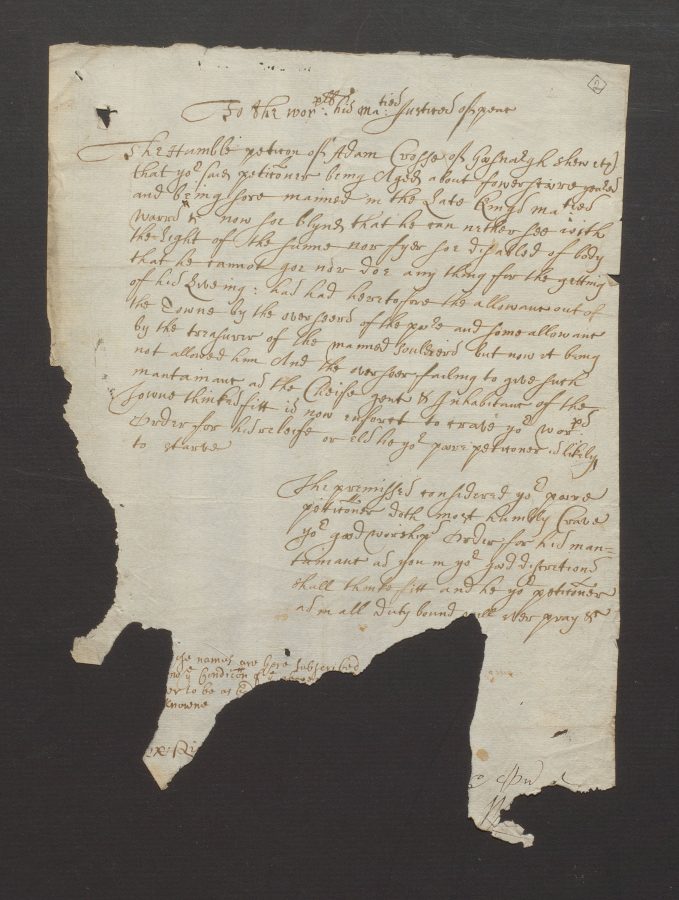 2
To the wor:pll his ma:ties Justices of peace
The Humble peticon of Adam Crosse of Goosnargh sheweth
that yor said petitioner being Aged about fowerscore yeares
and being sore maimed in the Late Kings maties
Warrs & now soe blynd that he can nether see
the light of the sunne nor fyer soe disabled of body
that he cannot goe nor doe any thing for the getting
of his Liveing: had had heretofore the allowance out of
the Towne by the overseers of the pore and some allowance
by the treasurer of the maimed souldiers but now it being
not allowed him And the overseer failing to give such
mantainance as the Cheife gent & Inhabitance of the
Towne thinkes fitt is now enforct to crave yor wor:ps
Order for his releife or els he yor pore petitioner is likely
to starve
The premisses considered yor poore
petitioner doth most humbly Crave
yor good worships Order for his man=
tainance as you in yor good discretions
shall thinke fitt and he yor petitioner
as in all duty bound will ever pray &c
names are here subscribed
Condition of
to be as
knowne